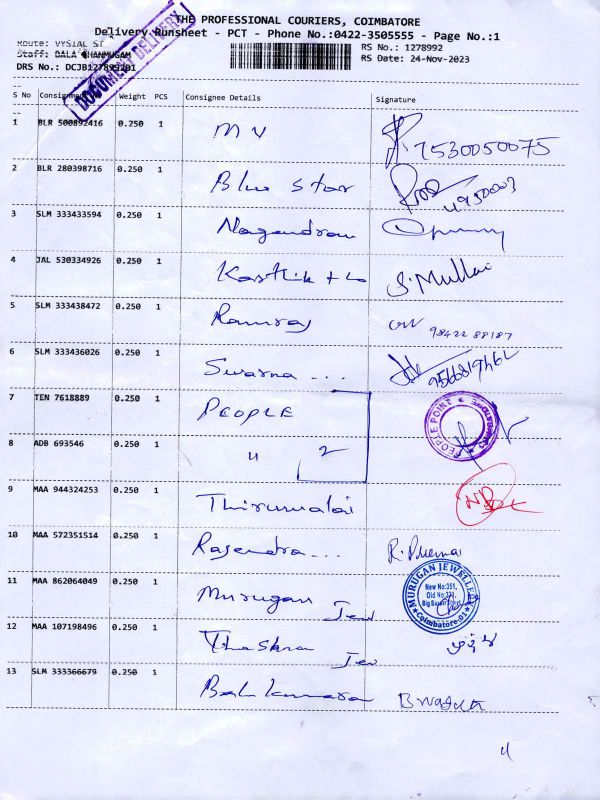 THE PROFESSIONAL COURIERS, COIMBATORE
Delivery Runsheet - PCT - Phone No.:0422-3505555 - Page No.:1
Route: VYSIAL ST
RS No.: 1278992
Staff: BALA SHANMUGAM
RS Date: 24-Nov-2023
DRS No.: DCJB127899201
DOCUMENT DELIVERY
S No Consignment Weight PCS Consignee Details Signature
1 BLR 500892416 0.250 1 M V 7530050075
2 BLR 280398716 0.250 1 Blue Star
3 SLM 333433594 0.250 1 Nagendran
4 JAL 530334926 0.250 1 Karthik S. Mullai
5 SLM 333438472 0.250 1 Ramraj 98422 88187
6 SLM 333436026 0.250 1 Swarna ...
7 TEN 7618889 0.250 1 PEOPLE
PEOPLE POINT
8 ADB 693546 0.250 1 " 2
9 MAA 944324253 0.250 1 Thirumalai
10 MAA 572351514 0.250 1 Rajendra ...
11 MAA 862064049 0.250 1 Murugan Jew
MURUGAN JEWELLERY
New No:351,
Big Bazaar Street
Coimbatore-01
12 MAA 107198496 0.250 1 Jew
13 SLM 333366679 0.250 1